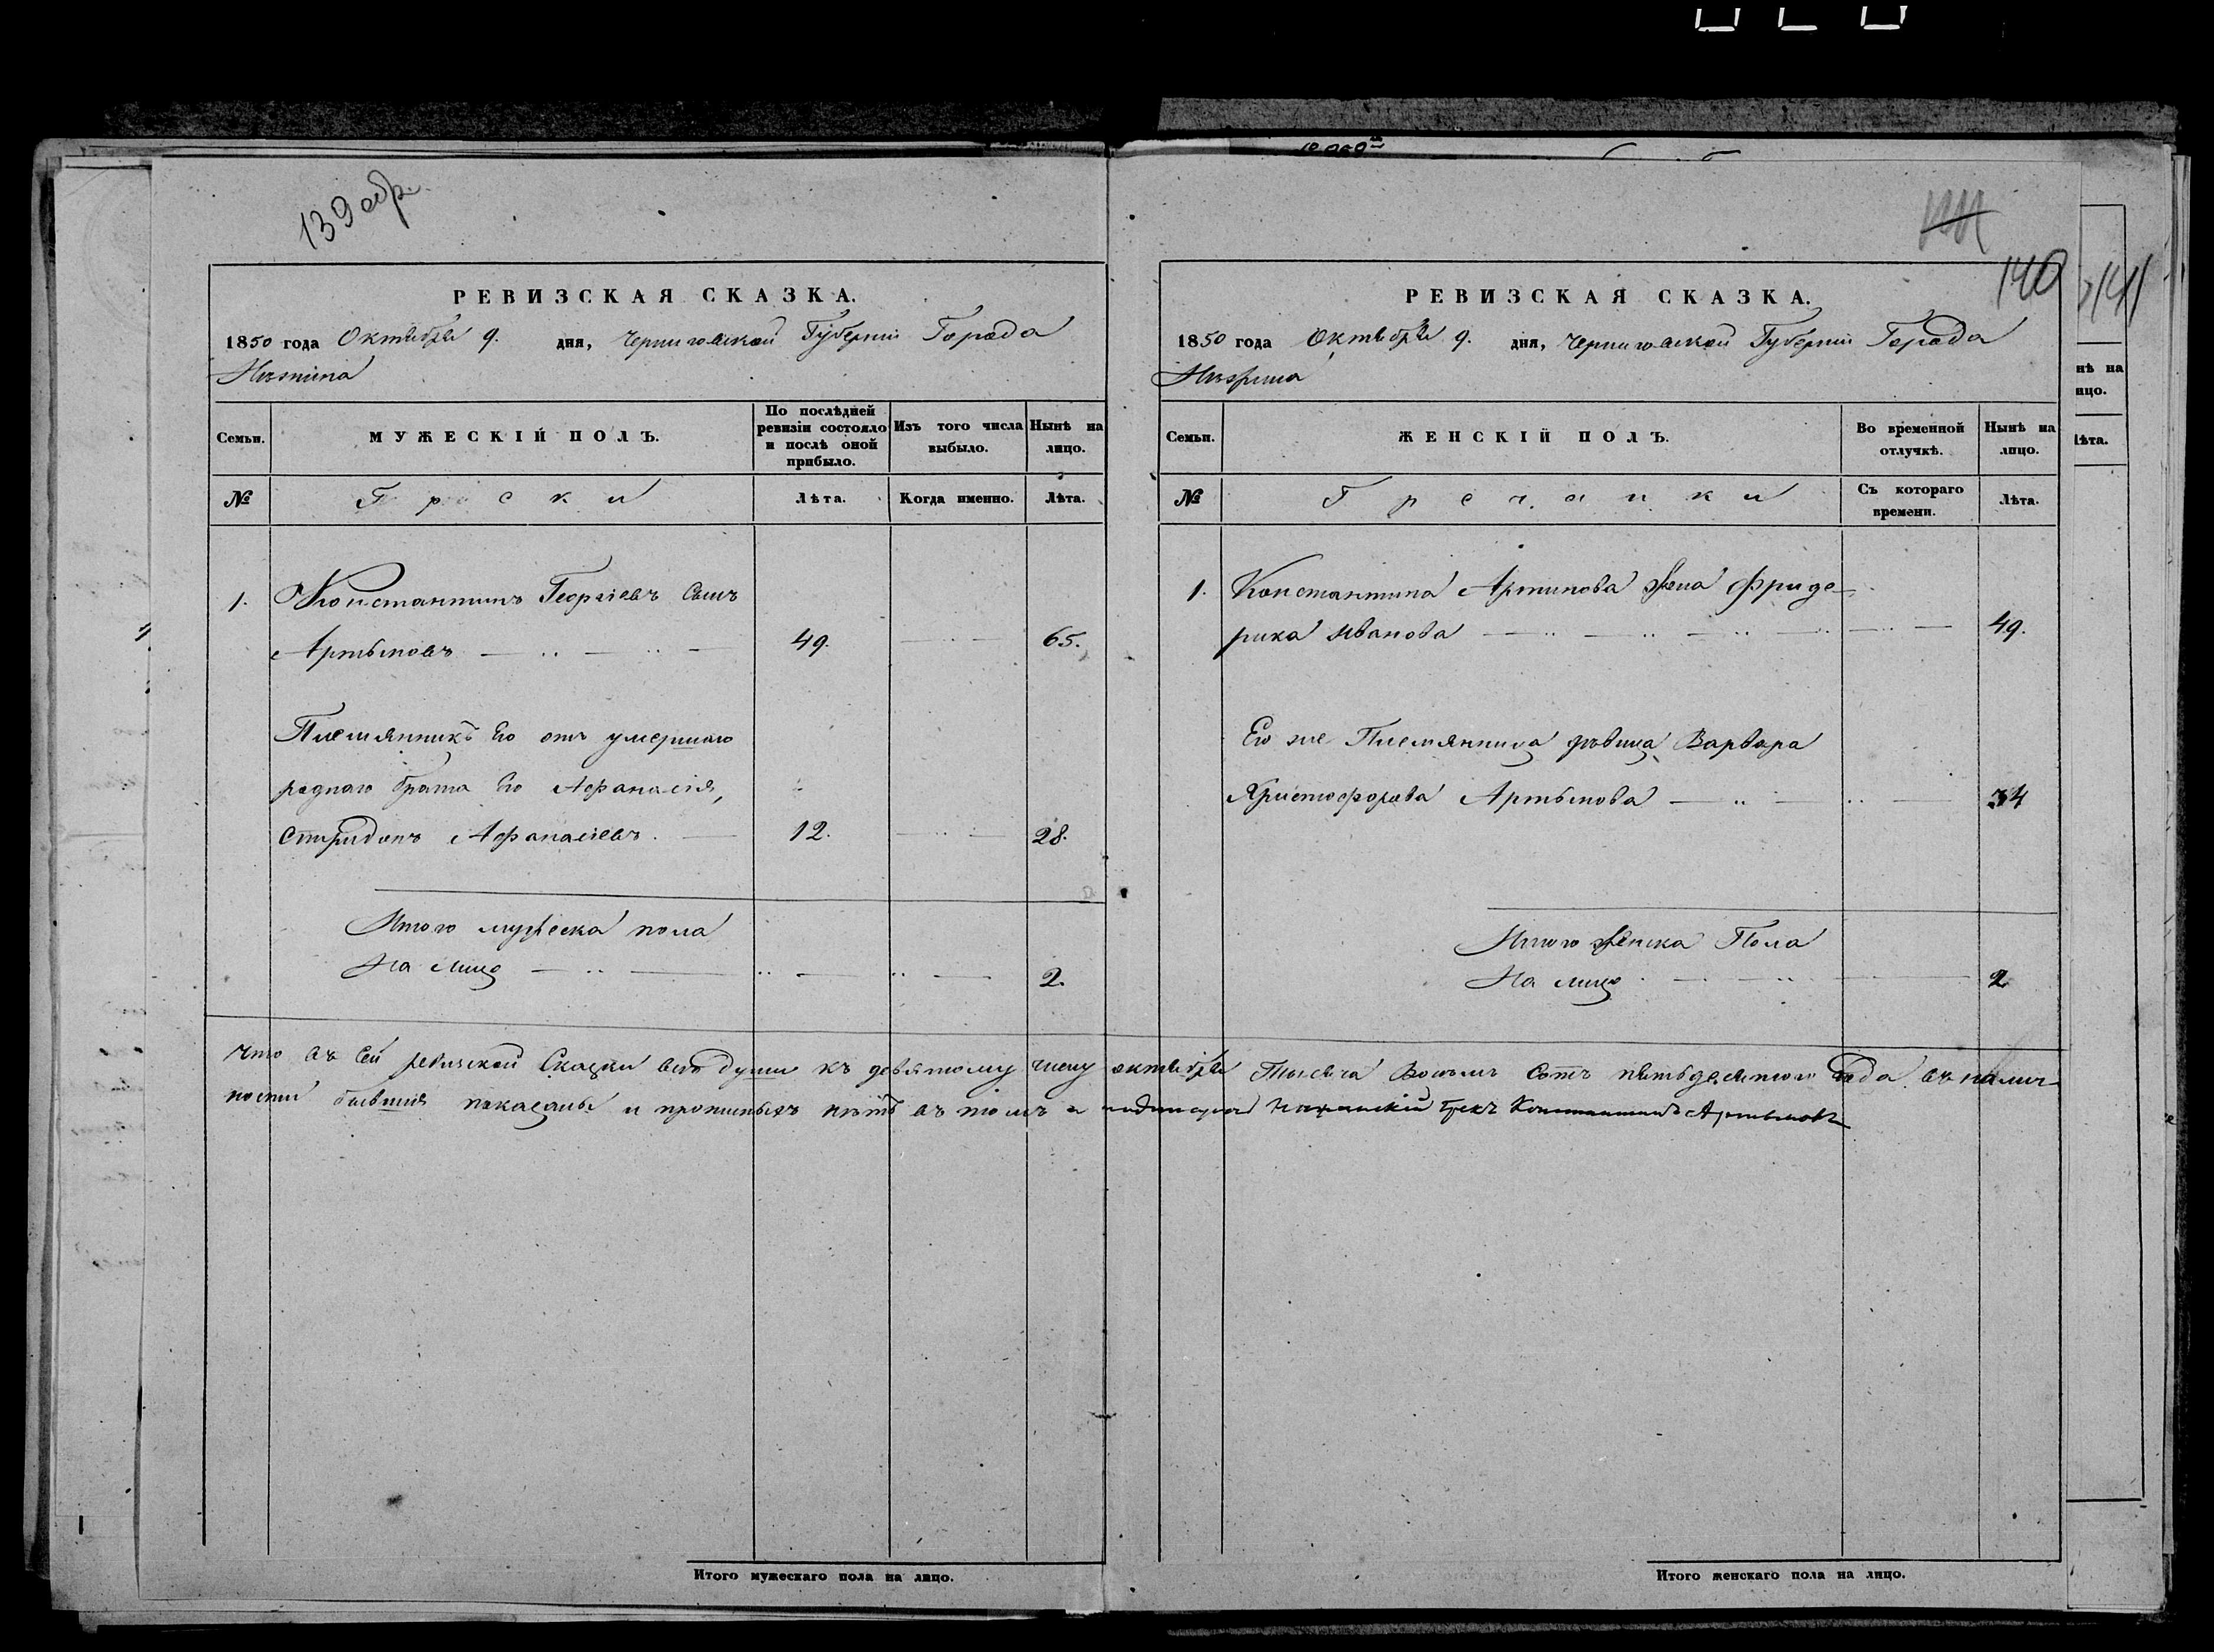 139 обр.
РЕВИЗСКАЯ СКАЗКА.
1850 года Октября 9. дня, Черниговской Губерніи Города
Нѣжина
Семьи.
МУЖЕСКІЙ ПОЛЪ.
По послѣдней ревизіи состояло и послѣ оной прибыло.
Изъ того числа выбыло.
Нынѣ на лицо.
№
Греки
Лѣта.
Когда именно.
Лѣта.
1. Константинъ Георгіевъ Сынъ
Артыновъ 49. 65.
Племянникъ Его отъ умершаго
роднаго брата Его Афанасія,
Спиридонъ Афанасіевъ. 12. 28.
Итого мужеска пола
На лицо 2.
140
РЕВИЗСКАЯ СКАЗКА.
1850 года Октября 9. дня, Черниговской Губерніи Города
Нѣжина
Семьи.
ЖЕНСКІЙ ПОЛЪ.
Во временной отлучкѣ.
Нынѣ на лицо.
№
Гречанки
Съ котораго времени.
Лѣта.
1. Константина Артинова Жена Фриде-
рика Иванова 49.
Его же Племянница дѣвица Варвара
Христофорова Артынова 34
Итого Женска Пола
На лицо 2
Что въ Сей ревизской Сказки всѣ души къ девятому числу октября Тысяча Восемь Сотъ пятьдесятого Года въ налич-
ности бывшия показаны и прописныхъ нѣтъ въ томъ и Нѣжинскій Грекъ Константинъ Артыновъ
Итого мужескаго пола на лицо.
Итого женскаго пола на лицо.
141
нѣ на
ицо.
Лѣта.